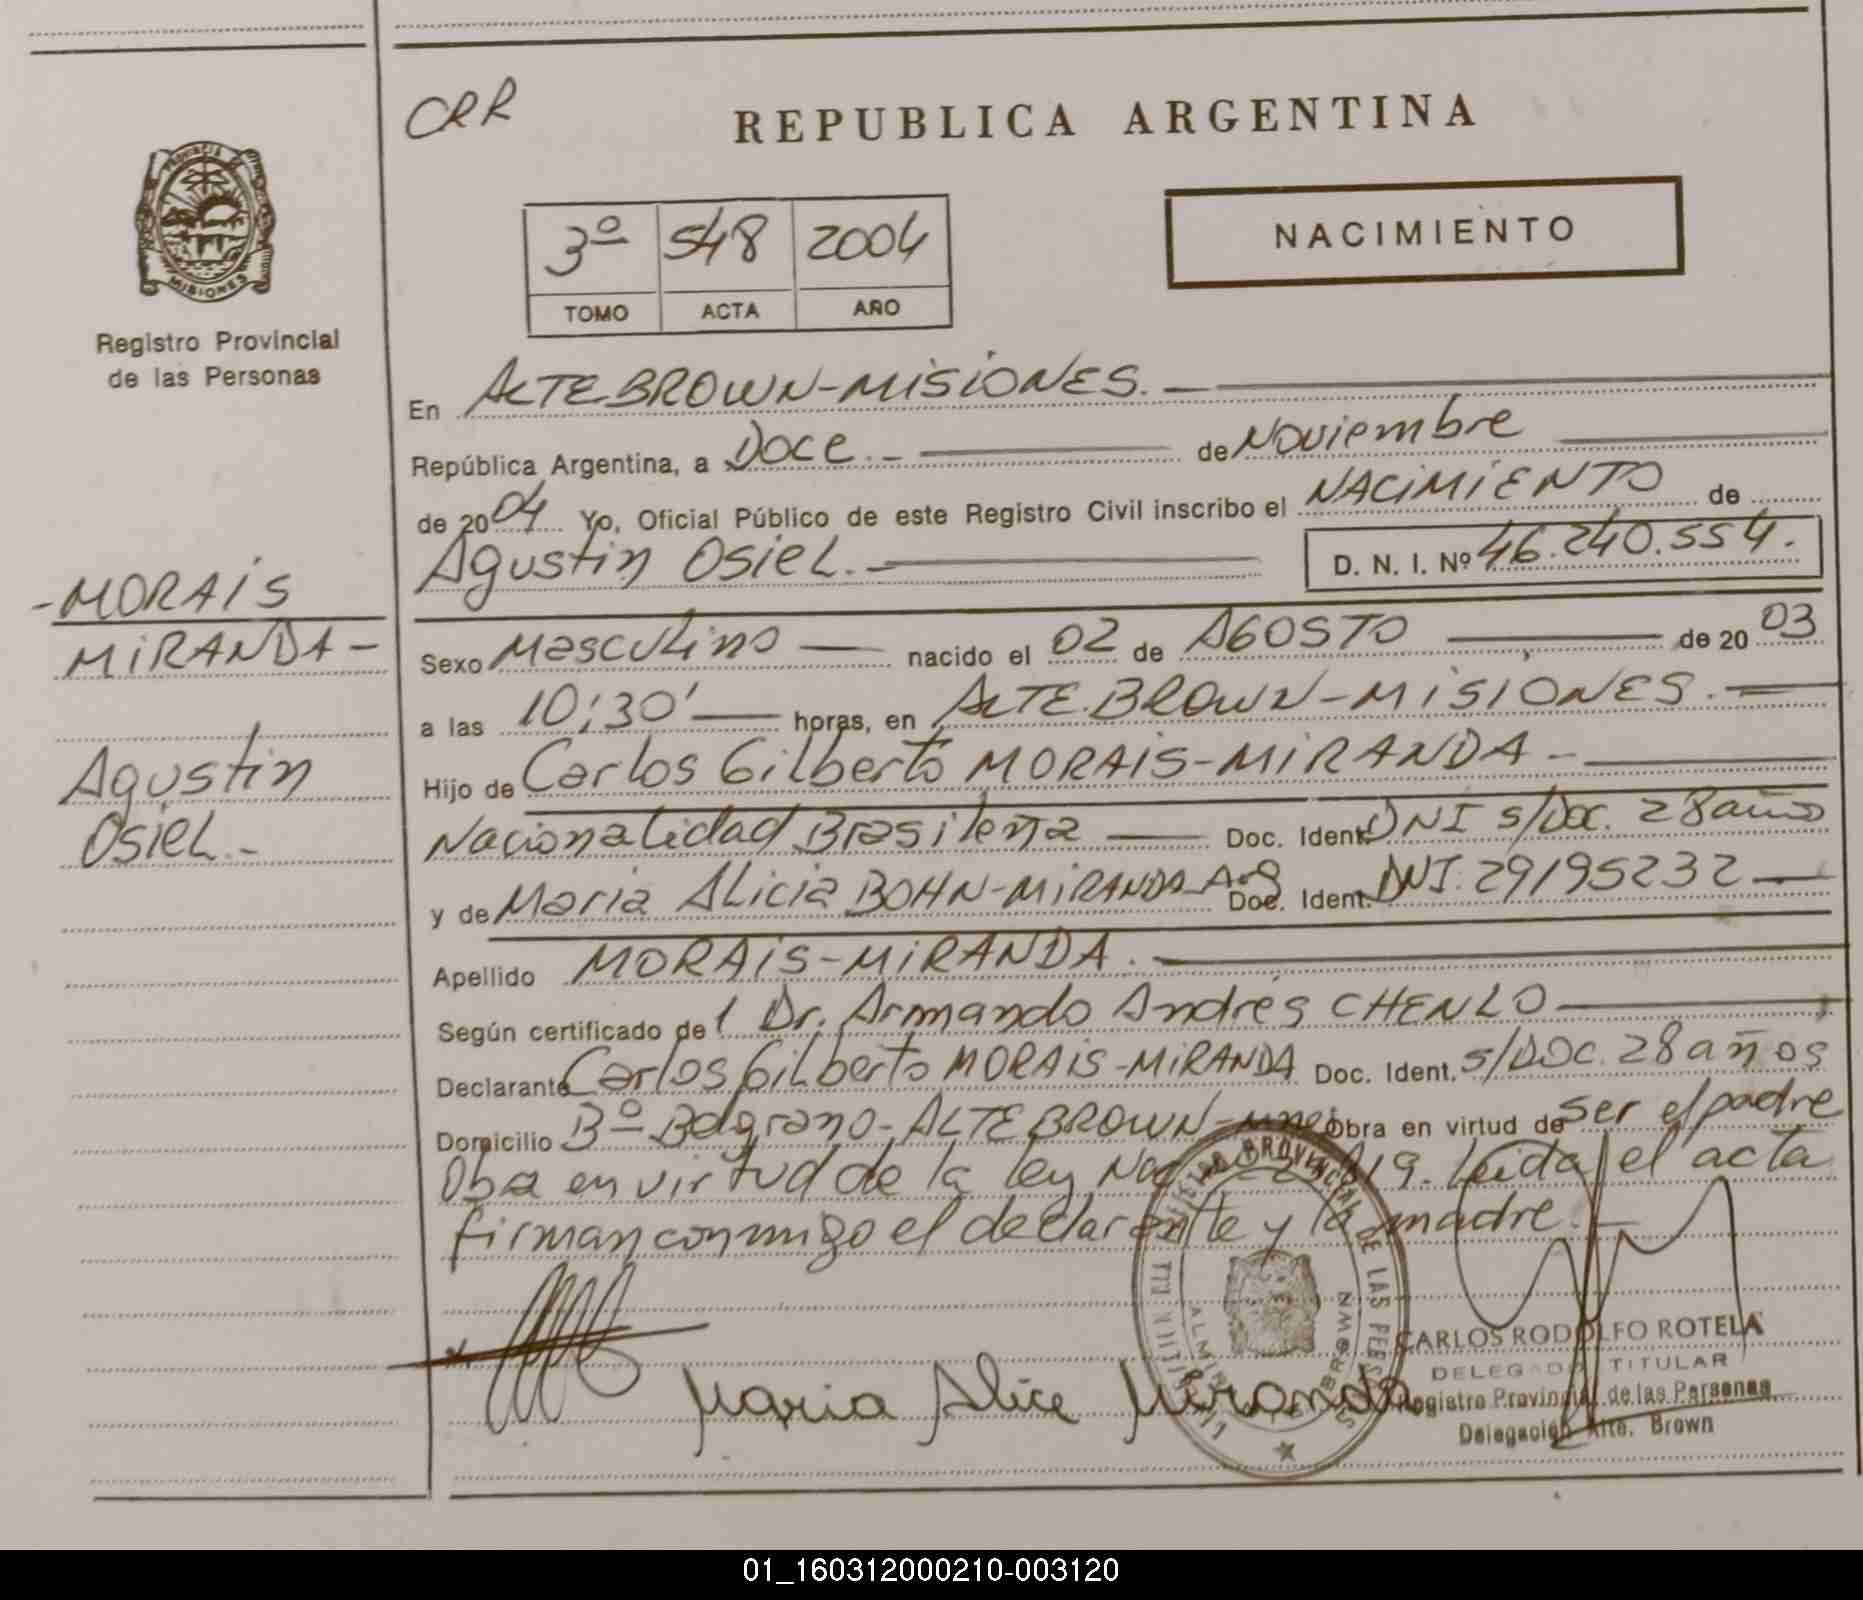 CRR
REPUBLICA ARGENTINA
3º 548 2004
TOMO ACTA AÑO
NACIMIENTO
PROVINCIA DE
MISIONES
Registro Provincial
de las Personas
En ALTE BROWN-MISIONES.
República Argentina, a Doce.- de Noviembre
de 2004 Yo, Oficial Público de este Registro Civil inscribo el NACIMIENTO de
Agustin OSIEL.- D. N. I. Nº 46.240.554.
-MORAIS
MIRANDA-
Agustin
OSIEL.-
Sexo Masculino nacido el 02 de AGOSTO de 2003
a las 10:30' horas, en ALTE.BROWN-MISIONES.
Hijo de Carlos Gilberto MORAIS-MIRANDA-
Nacionalidad Brasileña Doc. Ident. DNI s/Doc. 28 años
y de Maria Alicia BOHN-MIRANDA-Arg Doc. Ident. DNI.29195232
Apellido MORAIS-MIRANDA.
Según certificado de l Dr. Armando Andrés CHENLO
Declarante Carlos Gilberto MORAIS-MIRANDA Doc. Ident. s/DOC. 28 años
Domicilio Bº Belgrano-ALTE BROWN-Mnes Obra en virtud de ser el padre
Oba en virtud de la ley Leida el acta
firman conmigo el declarante y la madre.-
Maria Alice Miranda
REGISTRO PROVINCIAL DE LAS PERSONAS
BROWN
CARLOS RODOLFO ROTELA
DELEGADO TITULAR
Registro Provincial de las Personas
Delegación Alte. Brown
01_160312000210-003120